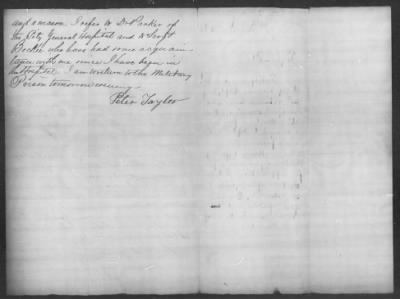 and a mason. I refer to Dr Parker of
the City General Hospital and to Sergt
Becker who have had some acquain-
tance with me since I have been in
the Hospital. I am written to the Military
Prison tomorrow evening.
Peter Taylor